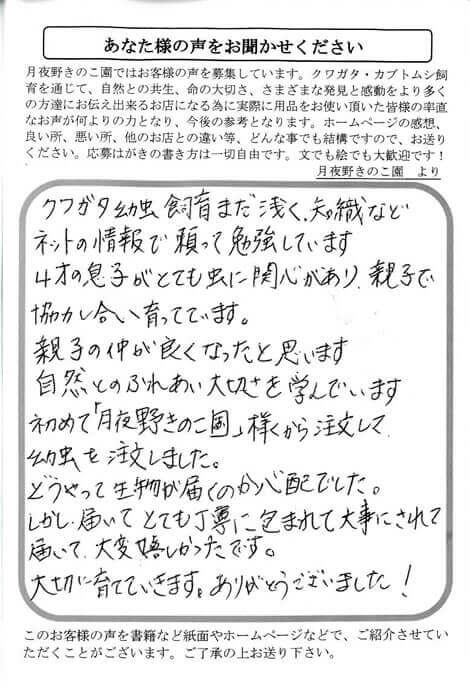 あなた様の声をお聞かせください
月夜野きのこ園ではお客様の声を募集しています。クワガタ・カブトムシ飼
育を通じて、自然との共生、命の大切さ、さまざまな発見と感動をより多く
の方達にお伝え出来るお店になる為に実際に用品をお使い頂いた皆様の率直
なお声が何よりの力となり、今後の参考となります。ホームページの感想、
良い所、悪い所、他のお店との違い等、どんな事でも結構ですので、お送り
ください。応募はがきの書き方は一切自由です。文でも絵でも大歓迎です！
月夜野きのこ園　より
クワガタ幼虫飼育まだ浅く、知識など
ネットの情報で頼って勉強しています
4才の息子がとても虫に関心があり、親子で
協力し合い育てています。
親子の仲が良くなったと思います
自然とのふれあい大切さを学んでいます
初めて「月夜野きのこ園」様から注文して
幼虫を注文しました。
どうやって生物が届くのか心配でした。
しかし、届いてとても丁寧に包まれて大事にされて
届いて、大変嬉しかったです。
大切に育てていきます。ありがとうございました！
このお客様の声を書籍など紙面やホームページなどで、ご紹介させてい
ただくことがございます。ご了承の上お送り下さい。